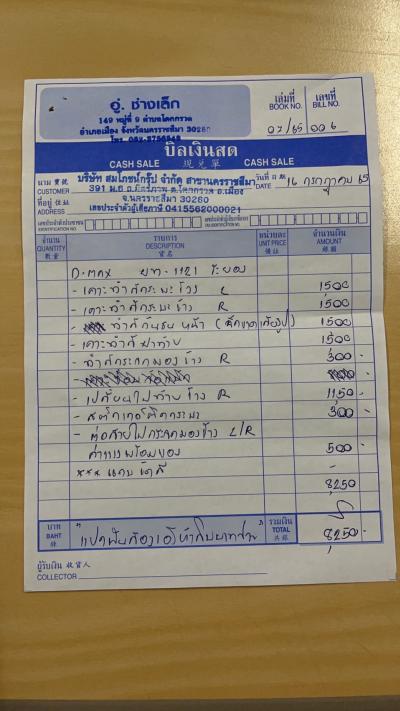 อู่. ช่างเล็ก
149 หมู่ที่ 9 ตำบลโคกกรวด
อำเภอเมือง จังหวัดนครราชสีมา 30280
โทร.
เล่มที่
BOOK NO.
เลขที่
BILL NO.
07/65 006
บิลเงินสด
CASH SALE 現兑單 CASH SALE
นาม
CUSTOMER
บริษัท สมโภชน์กรุ๊ป จำกัด สาขานครราชสีมา
วันที่
DATE 16 กรกฎาคม 65
391 ม.6 ถ.มิตรภาพ ต.โคกกรวด อ.เมือง
ที่อยู่
ADDRESS
จ.นครราชสีมา 30280
เลขประจำตัวผู้เสียภาษี 0415562000021
IDENTIFICATION NO.
จำนวน
QUANTITY
รายการ
DESCRIPTION
หน่วยละ
UNIT PRICE
จำนวนเงิน
AMOUNT
D-max ยท-1121 ระยอง
- เคาะทำสีกระบะข้าง L 1500
- เคาะทำสีกระบะข้าง R 1500
ทำสีกันชนหน้า 1500
- เคาะทำสีฝาท้าย 1500
- ทำสีกระจกมองข้าง R 300 -
- เปลี่ยนไฟท้ายข้าง R 1150 -
- สติ๊กเกอร์ติดกระบะ 300 -
- ต่อสายไฟกระจกมองข้าง L/R
ค่าแรงพร้อมของ 500 -
***
8,250
บาท
BAHT
"แปดพันสองร้อยห้าสิบบาทถ้วน"
รวมเงิน
TOTAL
8,250 -
ผู้รับเงิน
COLLECTOR